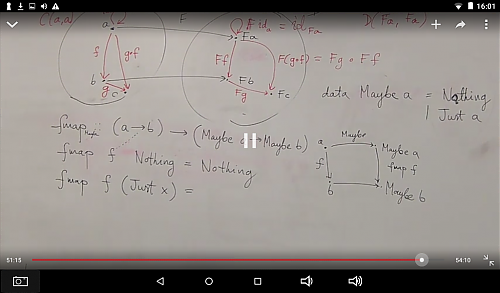 16:01
C(a,a)
F
F id_a = id_Fa
D(Fa, Fa)
a
Fa
f
g∘f
Ff
F(g∘f) = Fg ∘ Ff
b
g
c
Fb
Fg
Fc
data Maybe a = Nothing
| Just a
fmap :: (a→b) → (Maybe a→Maybe b)
fmap f Nothing = Nothing
fmap f (Just x) =
a
Maybe
Maybe a
f
fmap f
b
Maybe b
51:15
54:10